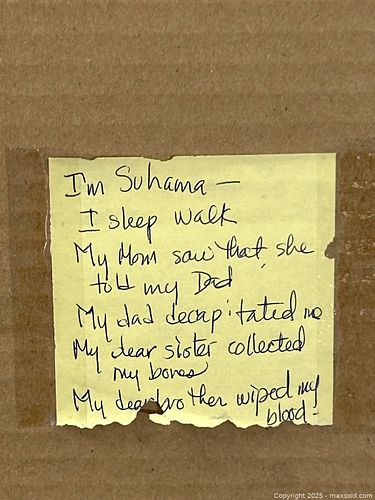 I'm Suhama —
I sleep walk
My Mom saw that, she
told my Dad
My dad decapitated me
My dear sister collected
my bones
My dear brother wiped my
blood -
Copyright 2025 - maxsold.com